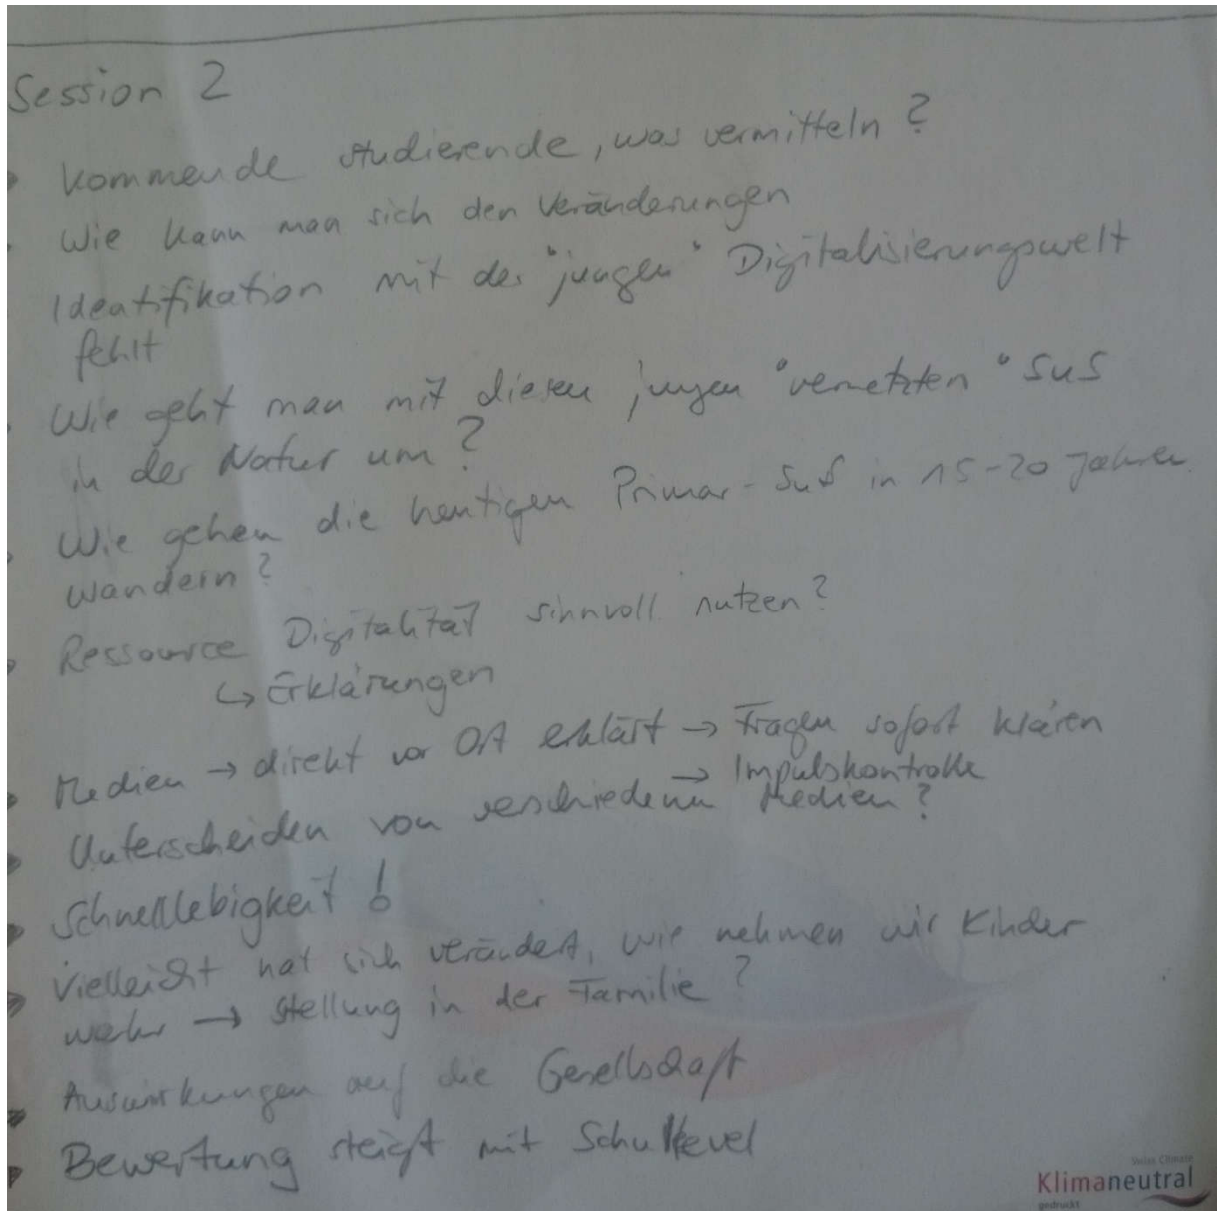 Session 2
Kommende Studierende, was vermitteln?
Wie kann man sich den Veränderungen
Identifikation mit der "jungen" Digitalisierungswelt
fehlt
Wie geht man mit diesen jungen "vernetzten" SuS
in der Natur um?
Wie gehen die heutigen Primar-SuS in 15-20 Jahren
wandern?
Ressource Digitalität sinnvoll nutzen?
↳ Erklärungen
Medien → direkt vor Ort erklärt → Fragen sofort klären
→ Impulskontrolle
Unterscheiden von verschiedenen Medien?
Schnelllebigkeit!
Vielleicht hat sich verändert, wie nehmen wir Kinder
wahr → Stellung in der Familie?
Auswirkungen auf die Gesellschaft
Bewertung steigt mit Schullevel
Swiss Climate
Klimaneutral
gedruckt